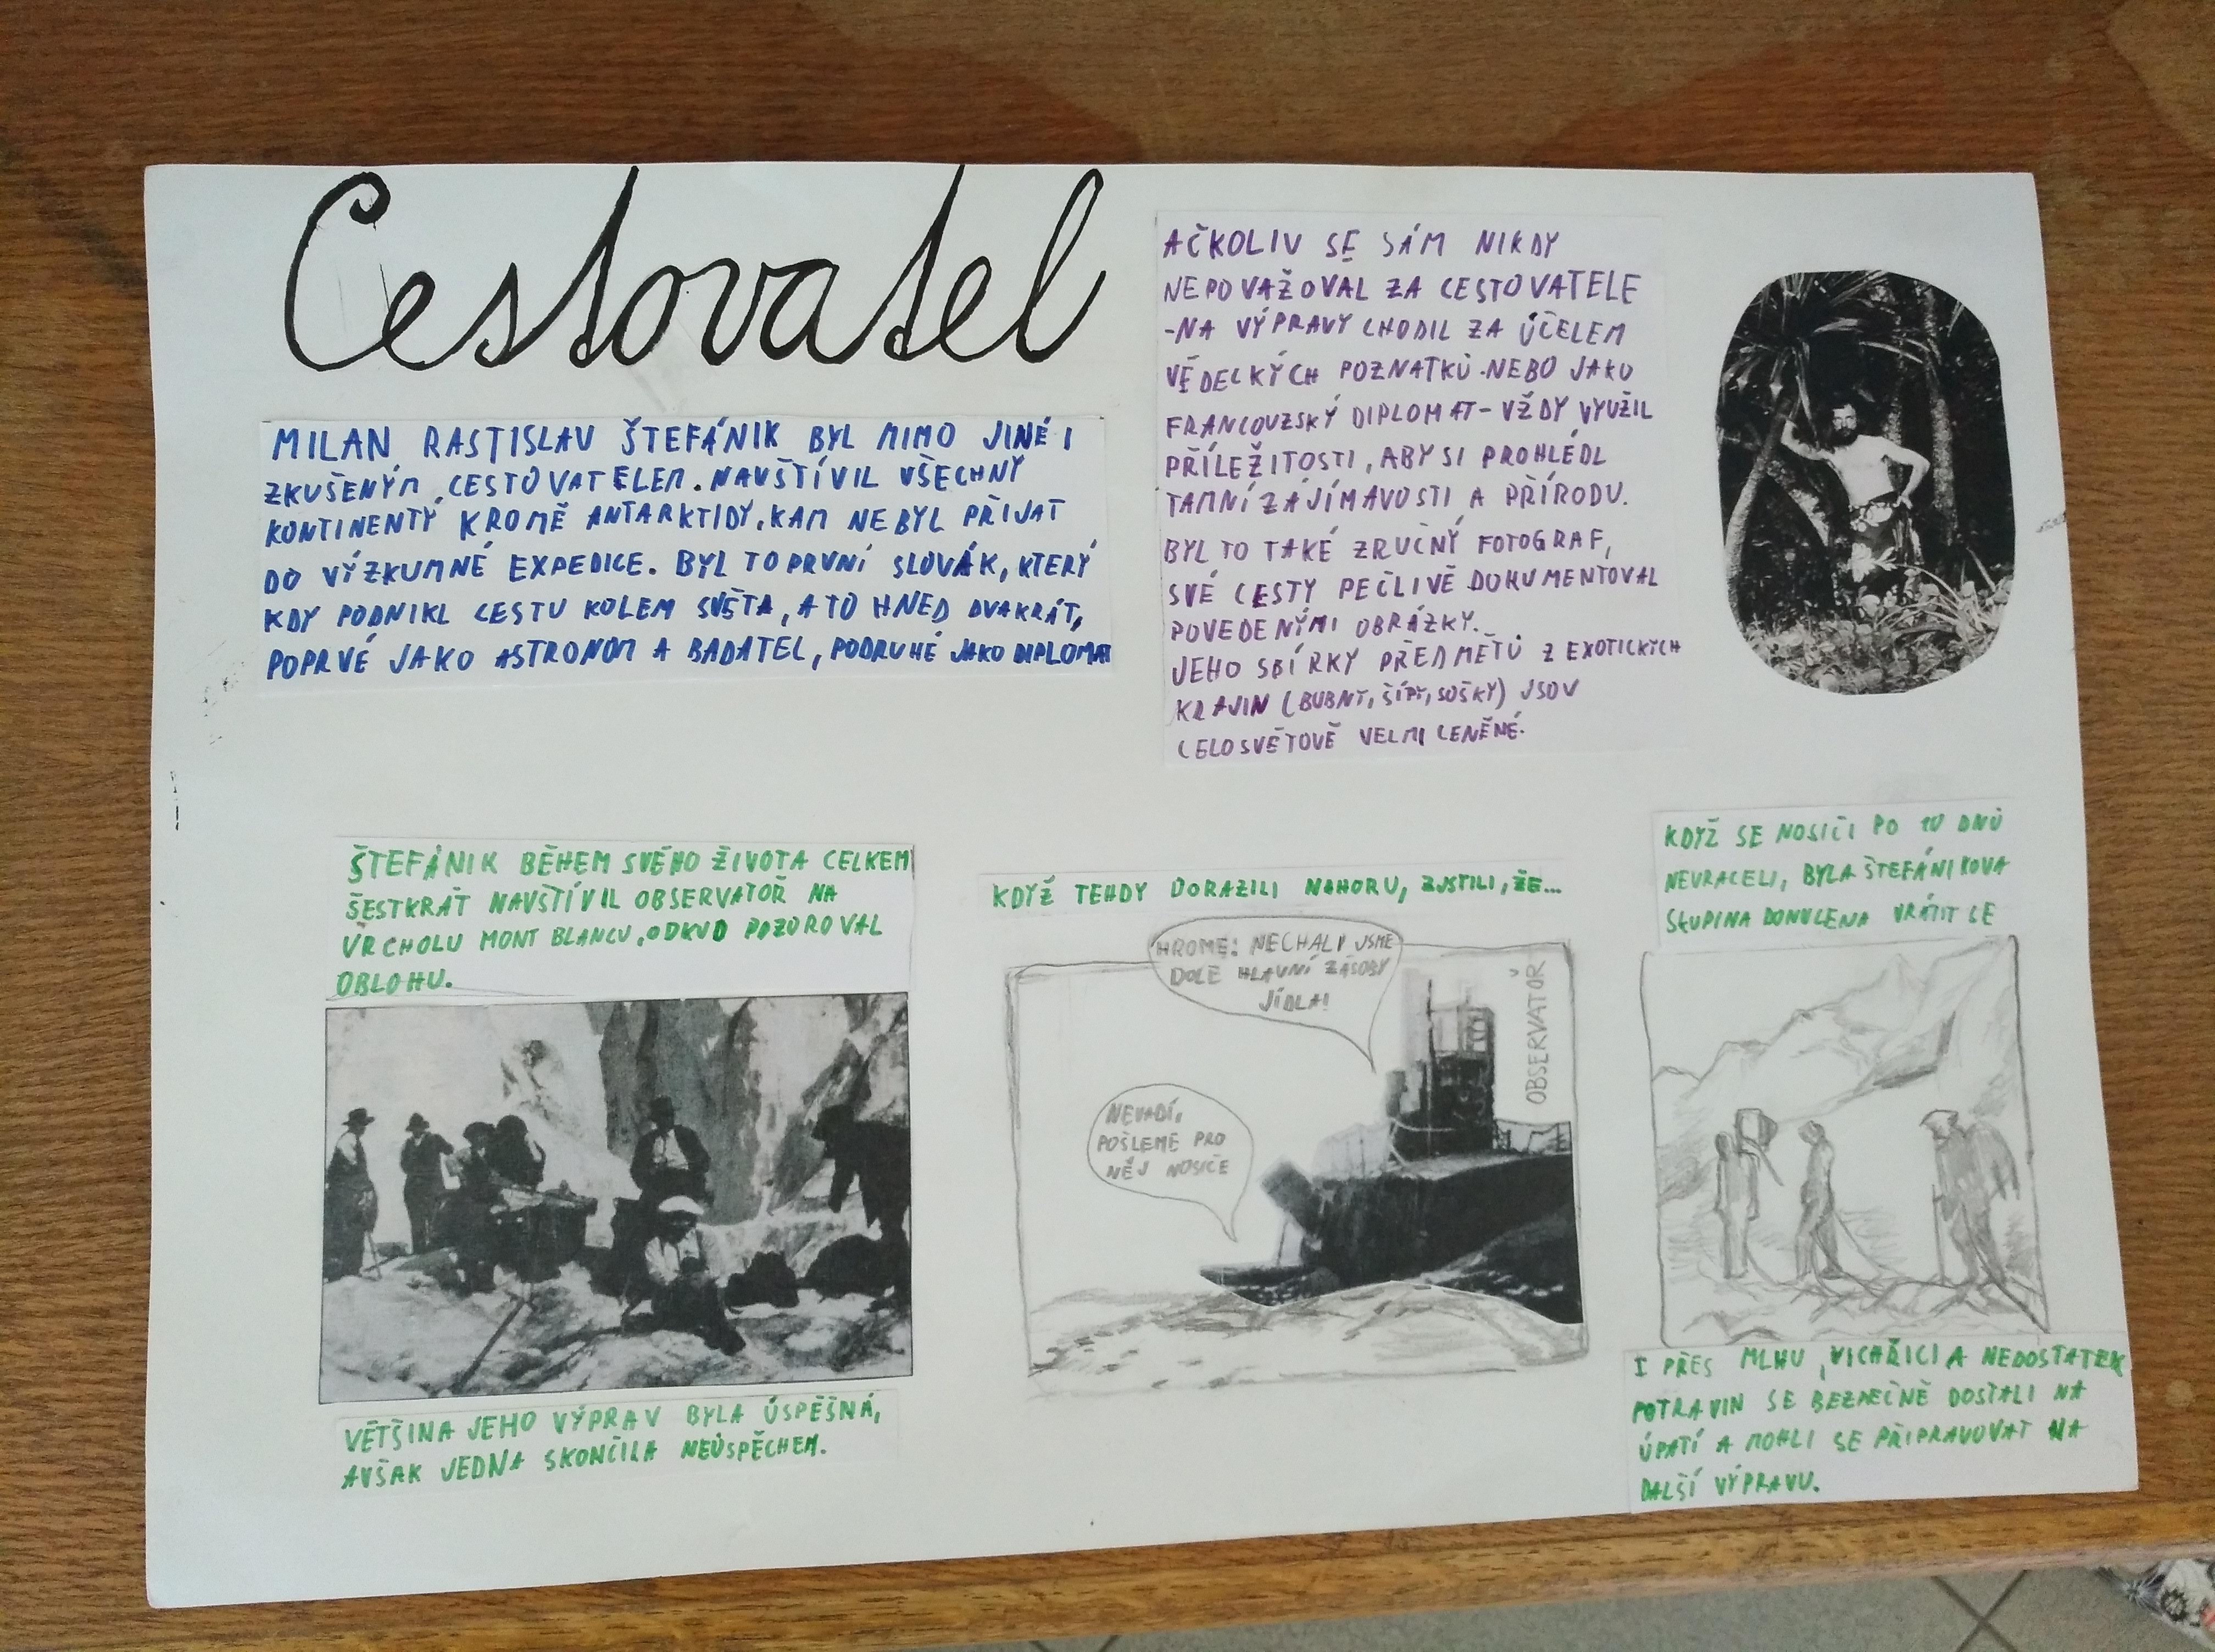 Cestovatel
MILAN RASTISLAV ŠTEFÁNIK BYL MIMO JINÉ I
ZKUŠENÝM CESTOVATELEM. NAVŠTÍVIL VŠECHNY
KONTINENTY KROMĚ ANTARKTIDY, KAM NEBYL PŘIJAT
DO VÝZKUMNÉ EXPEDICE. BYL TO PRVNÍ SLOVÁK, KTERÝ
KDY PODNIKL CESTU KOLEM SVĚTA, A TO HNED DVAKRÁT,
POPRVÉ JAKO ASTRONOM A BADATEL, PODRUHÉ JAKO DIPLOMAT
AČKOLIV SE SÁM NIKDY
NEPOVAŽOVAL ZA CESTOVATELE
-NA VÝPRAVY CHODIL ZA ÚČELEM
VĚDECKÝCH POZNATKŮ NEBO JAKO
FRANCOUZSKÝ DIPLOMAT- VŽDY VYUŽIL
PŘÍLEŽITOSTI, ABY SI PROHLÉDL
TAMNÍ ZAJÍMAVOSTI A PŘÍRODU.
BYL TO TAKÉ ZRUČNÝ FOTOGRAF,
SVÉ CESTY PEČLIVĚ DOKUMENTOVAL
POVEDENÝMI OBRÁZKY.
JEHO SBÍRKY PŘEDMĚTŮ Z EXOTICKÝCH
KRAJIN (BUBNY, ŠÍPY, SOŠKY) JSOU
CELOSVĚTOVĚ VELMI CENĚNÉ.
ŠTEFÁNIK BĚHEM SVÉHO ŽIVOTA CELKEM
ŠESTKRÁT NAVŠTÍVIL OBSERVATOŘ NA
VRCHOLU MONT BLANCU, ODKUD POZOROVAL
OBLOHU.
VĚTŠINA JEHO VÝPRAV BYLA ÚSPĚŠNÁ,
AVŠAK JEDNA SKONČILA NEÚSPĚCHEM.
KDYŽ TEHDY DORAZILI NAHORU, ZJISTILI, ŽE...
HROME! NECHALI JSME
DOLE HLAVNÍ ZÁSOBY
JÍDLA!
OBSERVATOŘ
NEVADÍ,
POŠLEME PRO
NĚJ NOSIČE
KDYŽ SE NOSIČI PO 10 DNŮ
NEVRACELI, BYLA ŠTEFÁNIKOVA
SKUPINA DONUCENA VRÁTIT SE
I PŘES MLHU, VICHŘICI A NEDOSTATEK
POTRAVIN SE BEZPEČNĚ DOSTALI NA
ÚPATÍ A MOHLI SE PŘIPRAVOVAT NA
DALŠÍ VÝPRAVU.